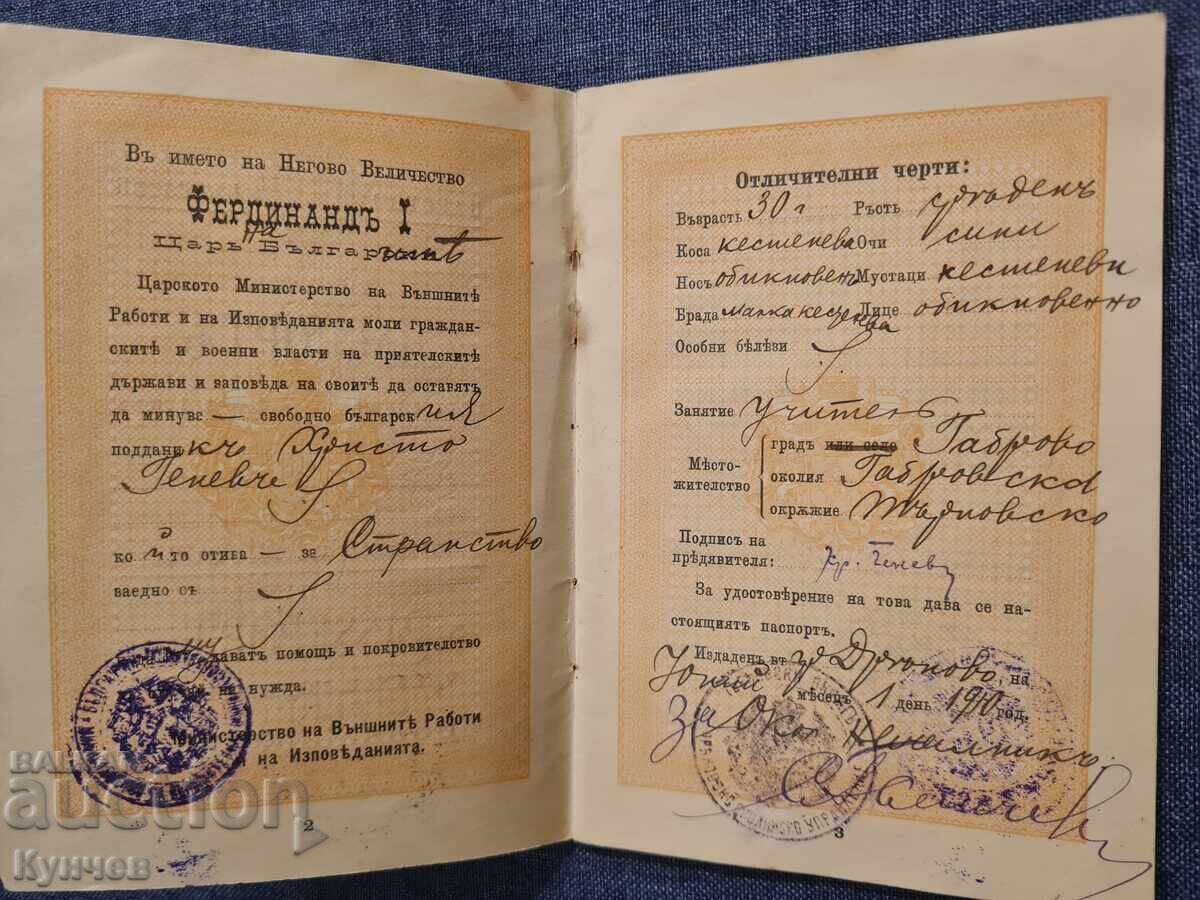 Въ името на Негово Величество
Фердинандъ I
Царь на Българитѣ
Царското Министерство на Външнитѣ
Работи и на Изповѣданията моли граждан-
скитѣ и военни власти на приятелскитѣ
държави и заповѣда на своитѣ да оставятъ
да минува — свободно българския
подданикъ Христо
Геневче
който отива — за Странство
заедно съ
му даватъ помощь и покровителство
нужда.
Министерство на Външнитѣ Работи
и на Изповѣданията.
2
Отличителни черти:
Възрасть 30 г Ръстъ срѣденъ
Коса кестенева Очи сини
Носъ обикновенъ Мустаци кестеневи
Брада малка кестенева Лице обикновенно
Особни бѣлѣзи
Занятие учитель
Мѣсто-
жителство
градъ или село Габрово
околия Габровска
окрѫжие Търновско
Подписъ на
прѣдявителя: Хр. Геневъ
За удостовѣрение на това дава се нас-
стоящиятъ паспортъ.
Издаденъ въ гр Дрѣново, на
Юний мѣсецъ 1 день 1910 год.
За Окол Началникъ:
3
БАЛКАН
auction
Кунчев